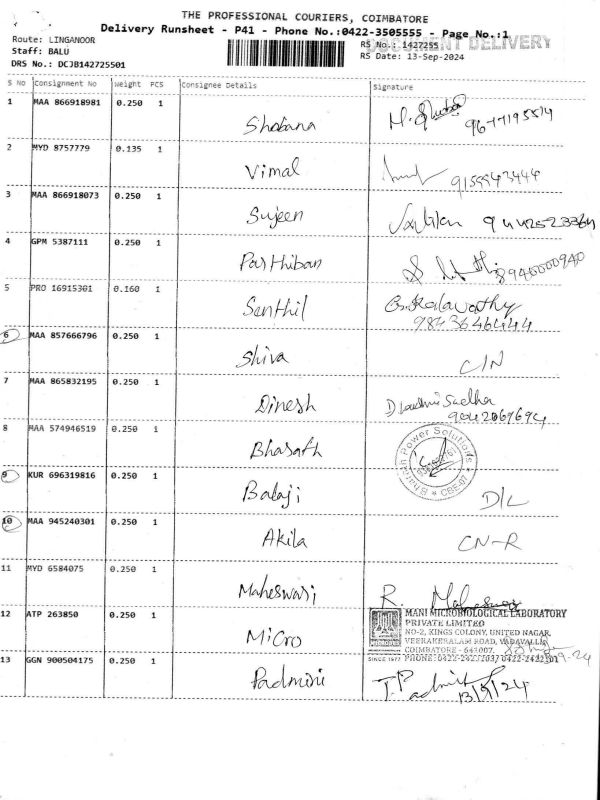 THE PROFESSIONAL COURIERS, COIMBATORE
Delivery Runsheet - P41 - Phone No.:0422-3505555 - Page No.:1
DOCUMENT DELIVERY
Route: LINGANOOR
RS No.: 1427255
Staff: BALU
RS Date: 13-Sep-2024
DRS No.: DCJB142725501
S No Consignment No Weight PCS Consignee Details Signature
1 MAA 866918981 0.250 1 Shobana M.
2 MYD 8757779 0.135 1 Vimal 9159543444
3 MAA 866918073 0.250 1 Sujeen
4 GPM 5387111 0.250 1 Parthiban 8940000940
5 PRO 16915301 0.160 1 Senthil G. Kalavathy
9843646444
6 MAA 857666796 0.250 1 Shiva C/N
7 MAA 865832195 0.250 1 Dinesh
9042069694
8 MAA 574946519 0.250 1 Bharath Power Solutions * CBE-07 *
9 KUR 696319816 0.250 1 Balaji D/L
10 MAA 945240301 0.250 1 Akila CN-R
11 MYD 6584075 0.250 1 Maheswari R. Maheswari
12 ATP 263850 0.250 1 Micro MANI MICROBIOLOGICAL LABORATORY
PRIVATE LIMITED
NO-2, KINGS COLONY, UNITED NAGAR,
VEERAKERALAM ROAD, VADAVALLI,
COIMBATORE - 641007.
SINCE 1977 PHONE:
13 GGN 900504175 0.250 1 Padmini T. Padmini
13/9/24